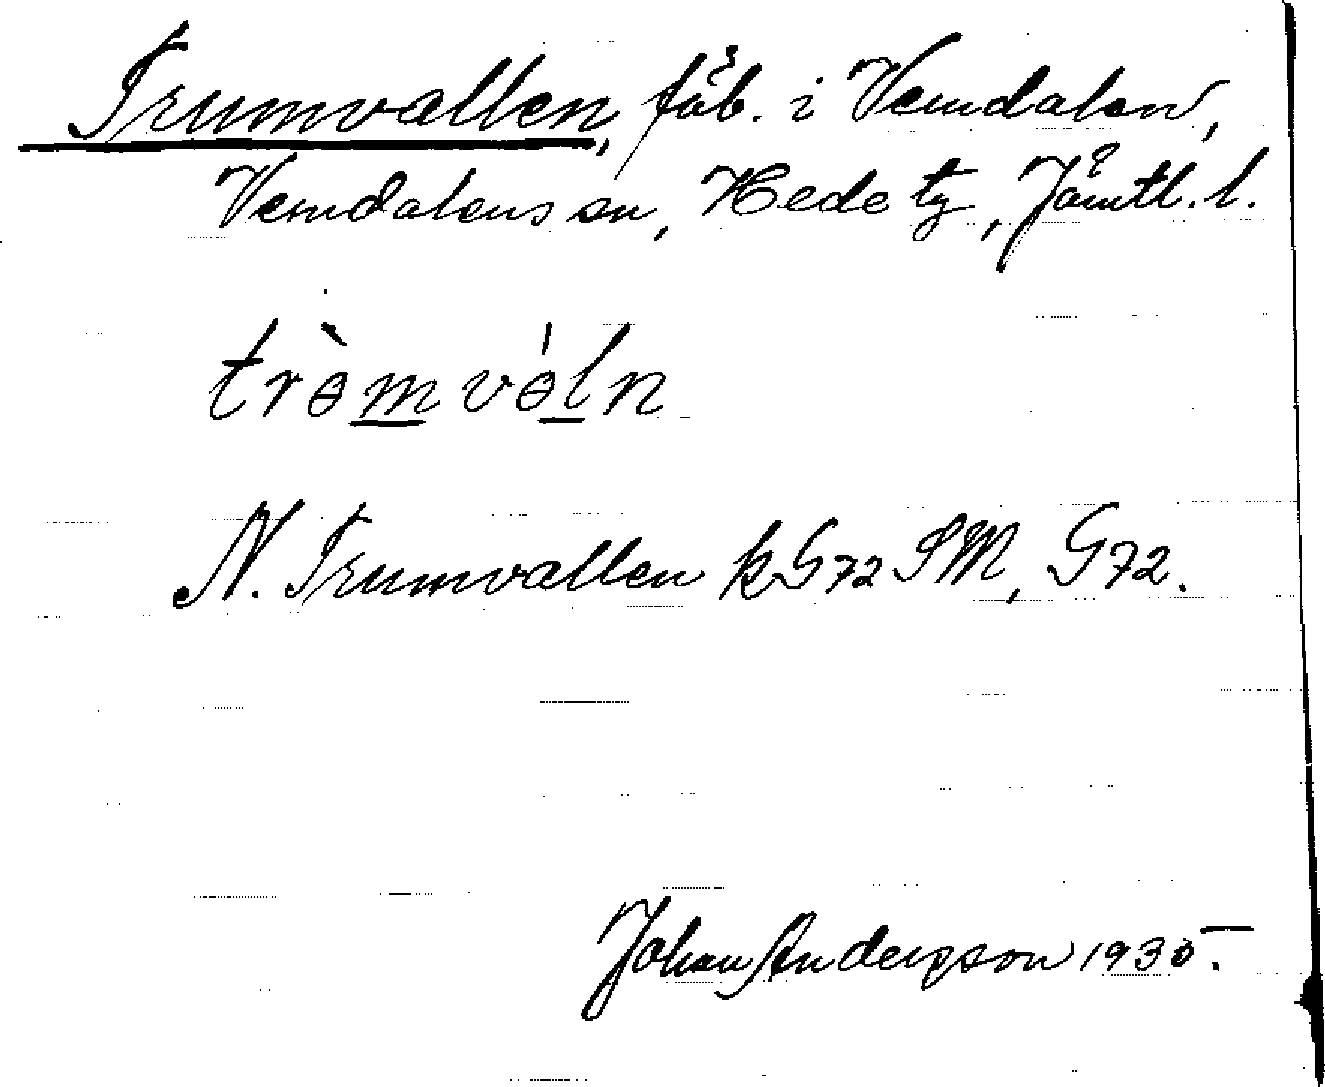 Trumvallen, fäb. i Vemdalen,
Vemdalens sn, Hede tg, Jämtl. l.
trèmvéln
N. Trumvallen kG72 SM, G72.
Johan Anderson 1935.